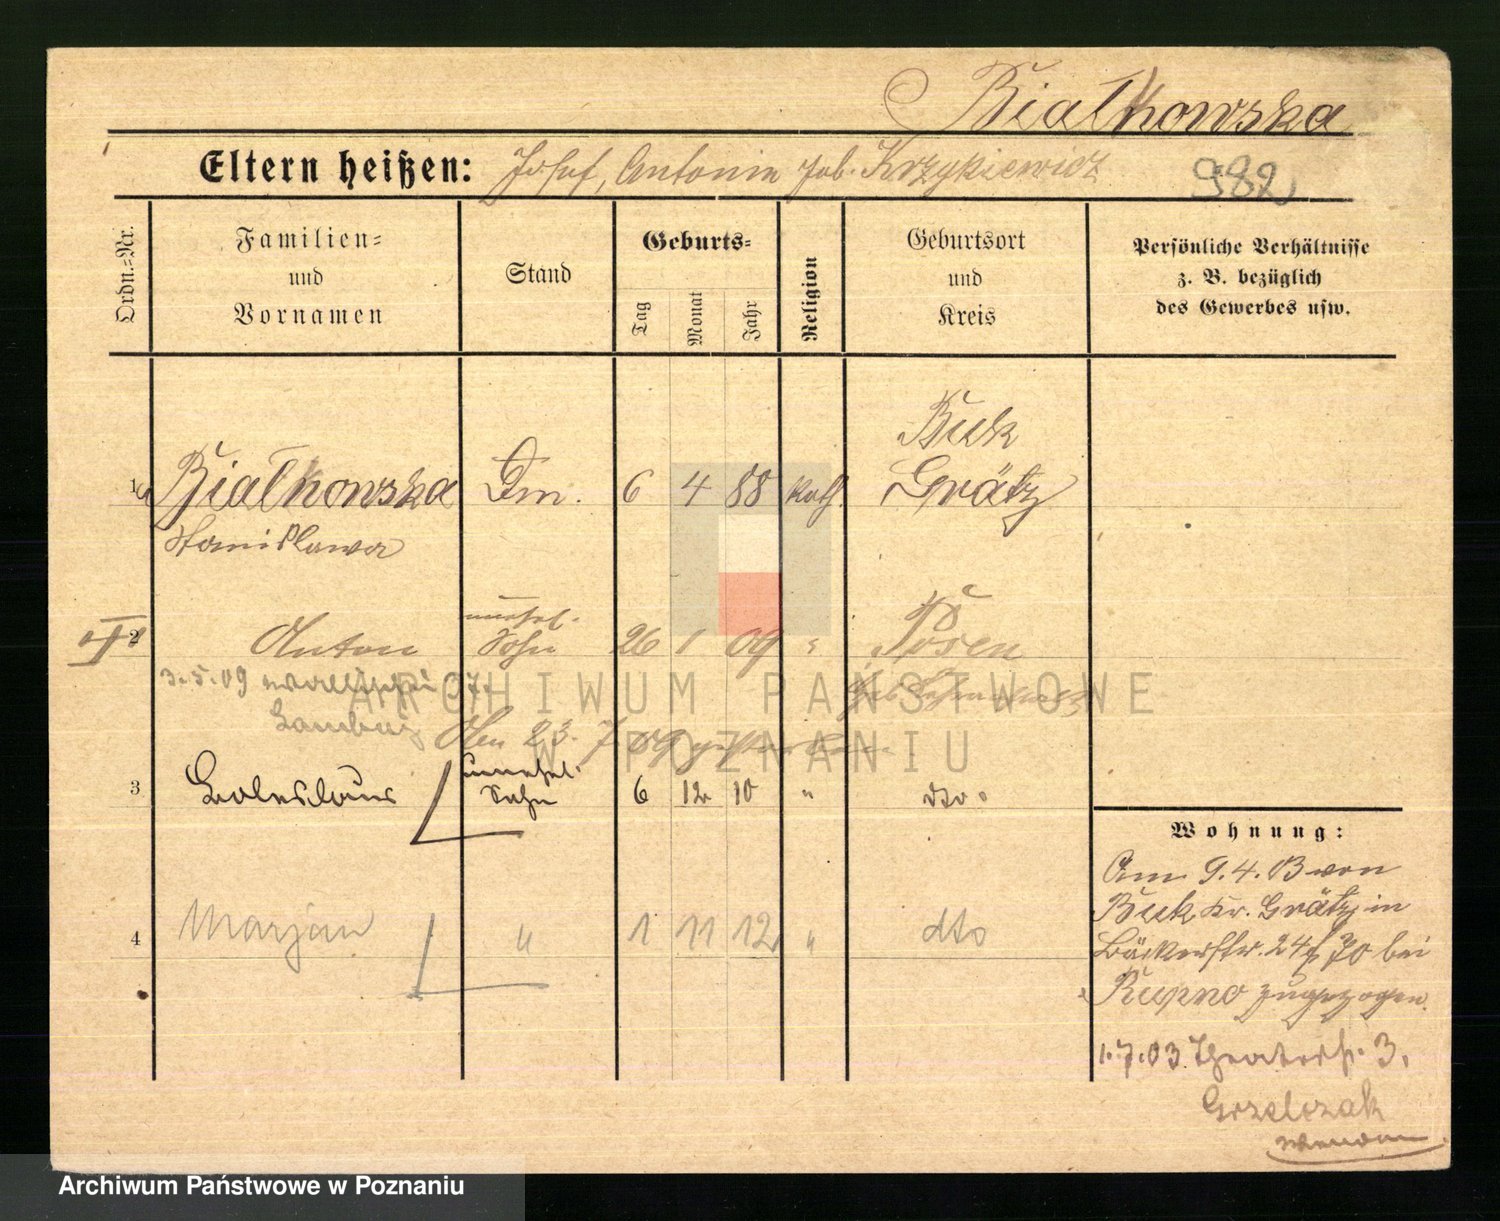 Białkowska
Eltern heißen: Josef, Antonin geb. Krzykiewicz 982
Ordn.=Nr.
Familien=
und
Vornamen
Stand
Geburts=
Tag
Monat
Jahr
Religion
Geburtsort
und
Kreis
Persönliche Verhältnisse
z. B. bezüglich
des Gewerbes usw.
Buk
1 Białkowska Dm. 6 4 88 kath. Grätz
Stanislawa
unehel.
2 Anton Sohn 26 1 09 " Posen
3.5.09
23.7.09
unehel.
3 Boleslaus Sohn 6 12 10 " dto.
4 Marjan " 1 11 12 " dto
Wohnung:
Am 9.4.03 von
Buk Kr. Grätz in
Bäckerstr. 24 bei
Rupno zugezogen.
1.7.03 Theaterstr. 3.
Grzelczak
ARCHIWUM PAŃSTWOWE
W POZNANIU
Archiwum Państwowe w Poznaniu